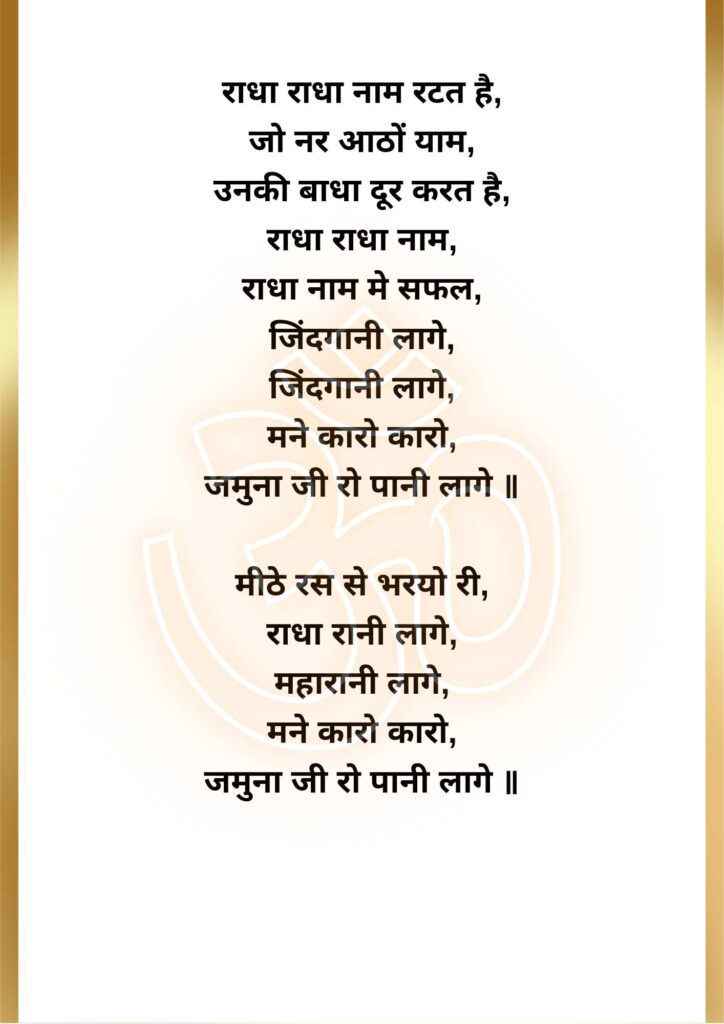 राधा राधा नाम रटत है,
जो नर आठों याम,
उनकी बाधा दूर करत है,
राधा राधा नाम,
राधा नाम मे सफल,
जिंदगानी लागे,
जिंदगानी लागे,
मने कारो कारो,
जमुना जी रो पानी लागे ॥
मीठे रस से भरयो री,
राधा रानी लागे,
महारानी लागे,
मने कारो कारो,
जमुना जी रो पानी लागे ॥